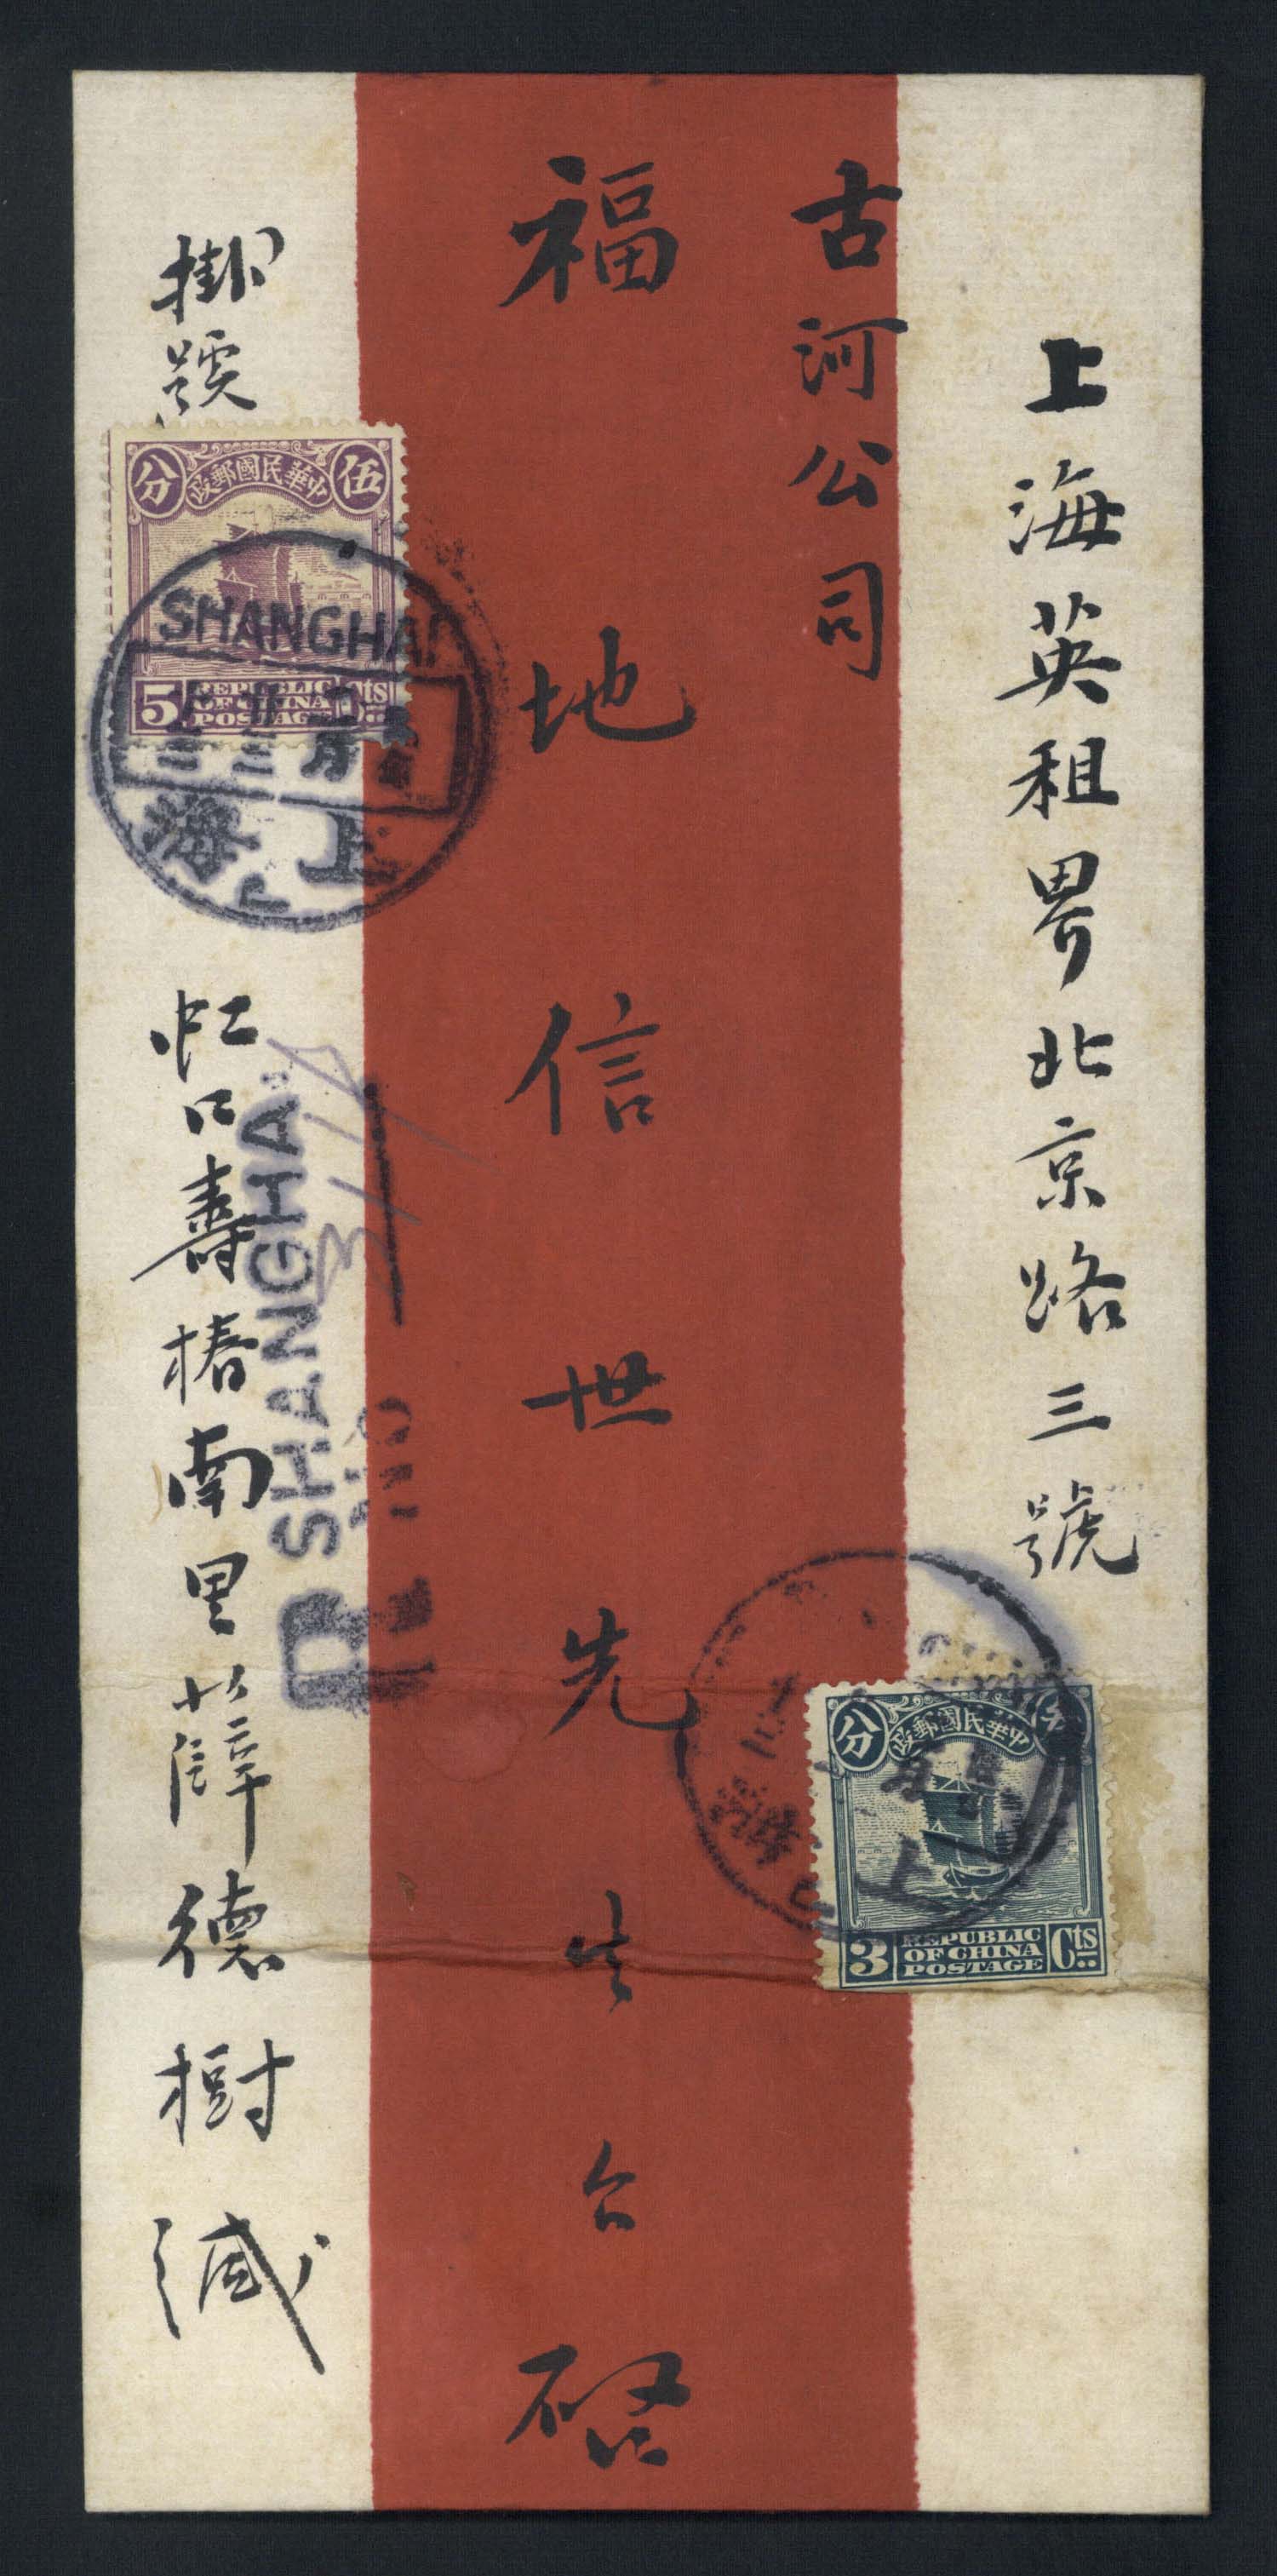 上海英租界北京路三號
古河公司
福地信世先生台啓
掛號
虹口壽椿南里薛德樹緘
伍
中華民國郵政
分
5
REPUBLIC
OF CHINA
POSTAGE
Cts
SHANGHAI
上海
R SHANGHAI
No
中華民國郵政
分
3
REPUBLIC
OF CHINA
POSTAGE
Cts
上海